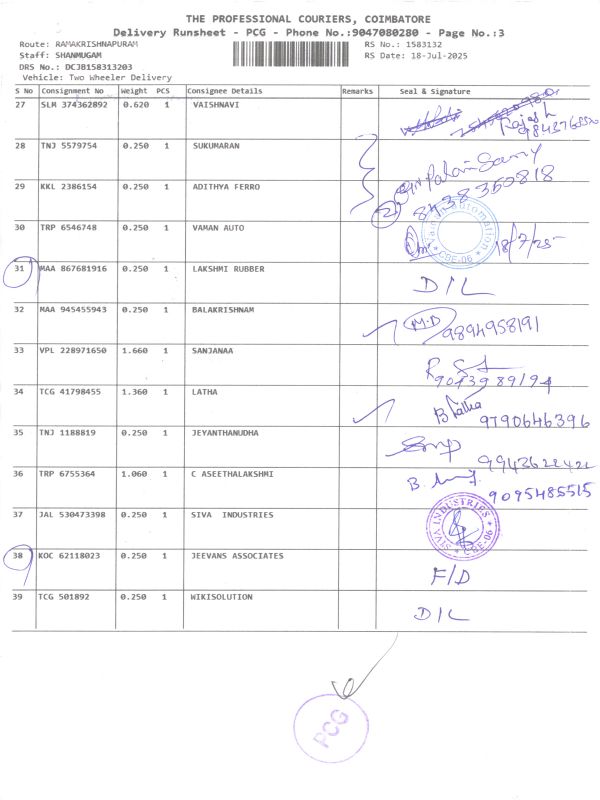 THE PROFESSIONAL COURIERS, COIMBATORE
Delivery Runsheet - PCG - Phone No.:9047080280 - Page No.:3
Route: RAMAKRISHNAPURAM
Staff: SHANMUGAM
DRS No.: DCJB158313203
Vehicle: Two Wheeler Delivery
RS No.: 1583132
RS Date: 18-Jul-2025
S No Consignment No Weight PCS Consignee Details Remarks Seal & Signature
27 SLM 374362892 0.620 1 VAISHNAVI Rajesh
28 TNJ 5579754 0.250 1 SUKUMARAN
29 KKL 2386154 0.250 1 ADITHYA FERRO 2 8438350818
30 TRP 6546748 0.250 1 VAMAN AUTO CBE-06 18/7/25
31 MAA 867681916 0.250 1 LAKSHMI RUBBER D/L
32 MAA 945455943 0.250 1 BALAKRISHNAM M.D 9894958191
33 VPL 228971650 1.660 1 SANJANAA 9043989194
34 TCG 41798455 1.360 1 LATHA B latha 9790646396
35 TNJ 1188819 0.250 1 JEYANTHANUDHA 9943622422
36 TRP 6755364 1.060 1 C ASEETHALAKSHMI 9095485515
37 JAL 530473398 0.250 1 SIVA INDUSTRIES SIVA INDUSTRIES CBE-06
38 KOC 62118023 0.250 1 JEEVANS ASSOCIATES F/D
39 TCG 501892 0.250 1 WIKISOLUTION D/L
PCG